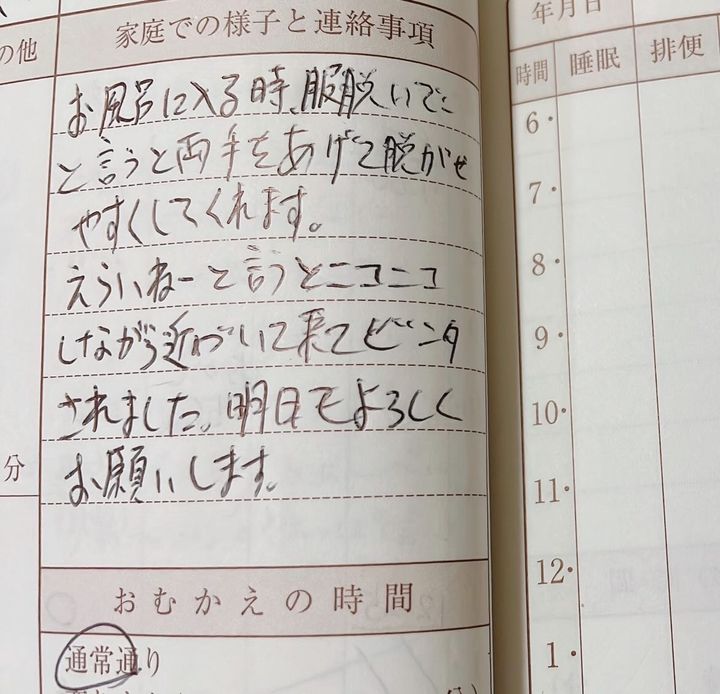 の他
家庭での様子と連絡事項
お風呂に入る時、服脱いでー
と言うと両手をあげて脱がせ
やすくしてくれます。
えらいねーと言うとニコニコ
しながら近づいて来てビンタ
されました。明日もよろしく
お願いします。
分
おむかえの時間
通常通り
年月日
時間 睡眠 排便
6・
7・
8・
9・
10・
11・
12・
1・